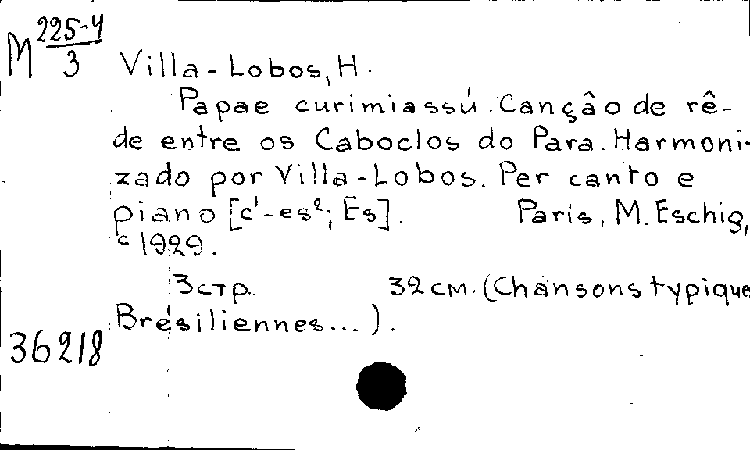 М 225-4/3
Villa-Lobos, H.
Papae curimiassú. Canção de rê-
de entre os Caboclos do Para. Harmoni-
zado por Villa-Lobos. Per canto e
piano [c¹-es²; Es]. Paris, M. Eschig,
c 1929.
3 стр. 32 см. (Chansons typique
Brésiliennes...).
36218